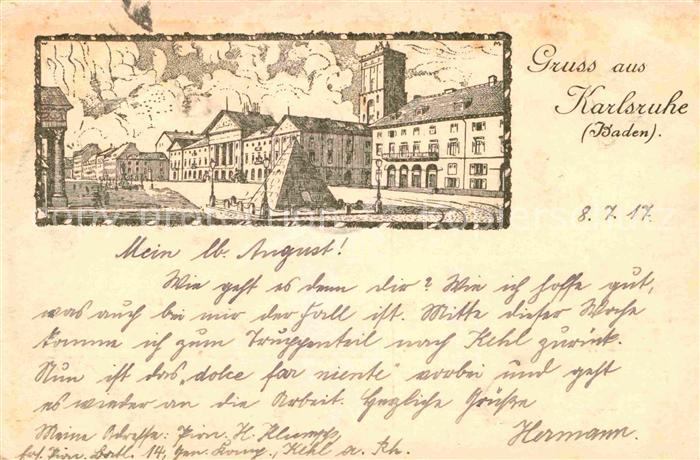 Gruss aus
Karlsruhe
(Baden).
8. 7. 17.
Mein lb. August!
Wie geht es denn dir? Wie ich hoffe gut,
was auch bei mir der Fall ist. Mitte dieser Woche
komme ich zum Truppenteil nach Kehl zurück.
Nun ist das „dolce far niente" vorbei und geht
es wieder an die Arbeit. Herzliche Grüße
Hermann.
Meine Adresse: Pion. H.
Pion. Batl. 14, Komp., Kehl a. Rh.